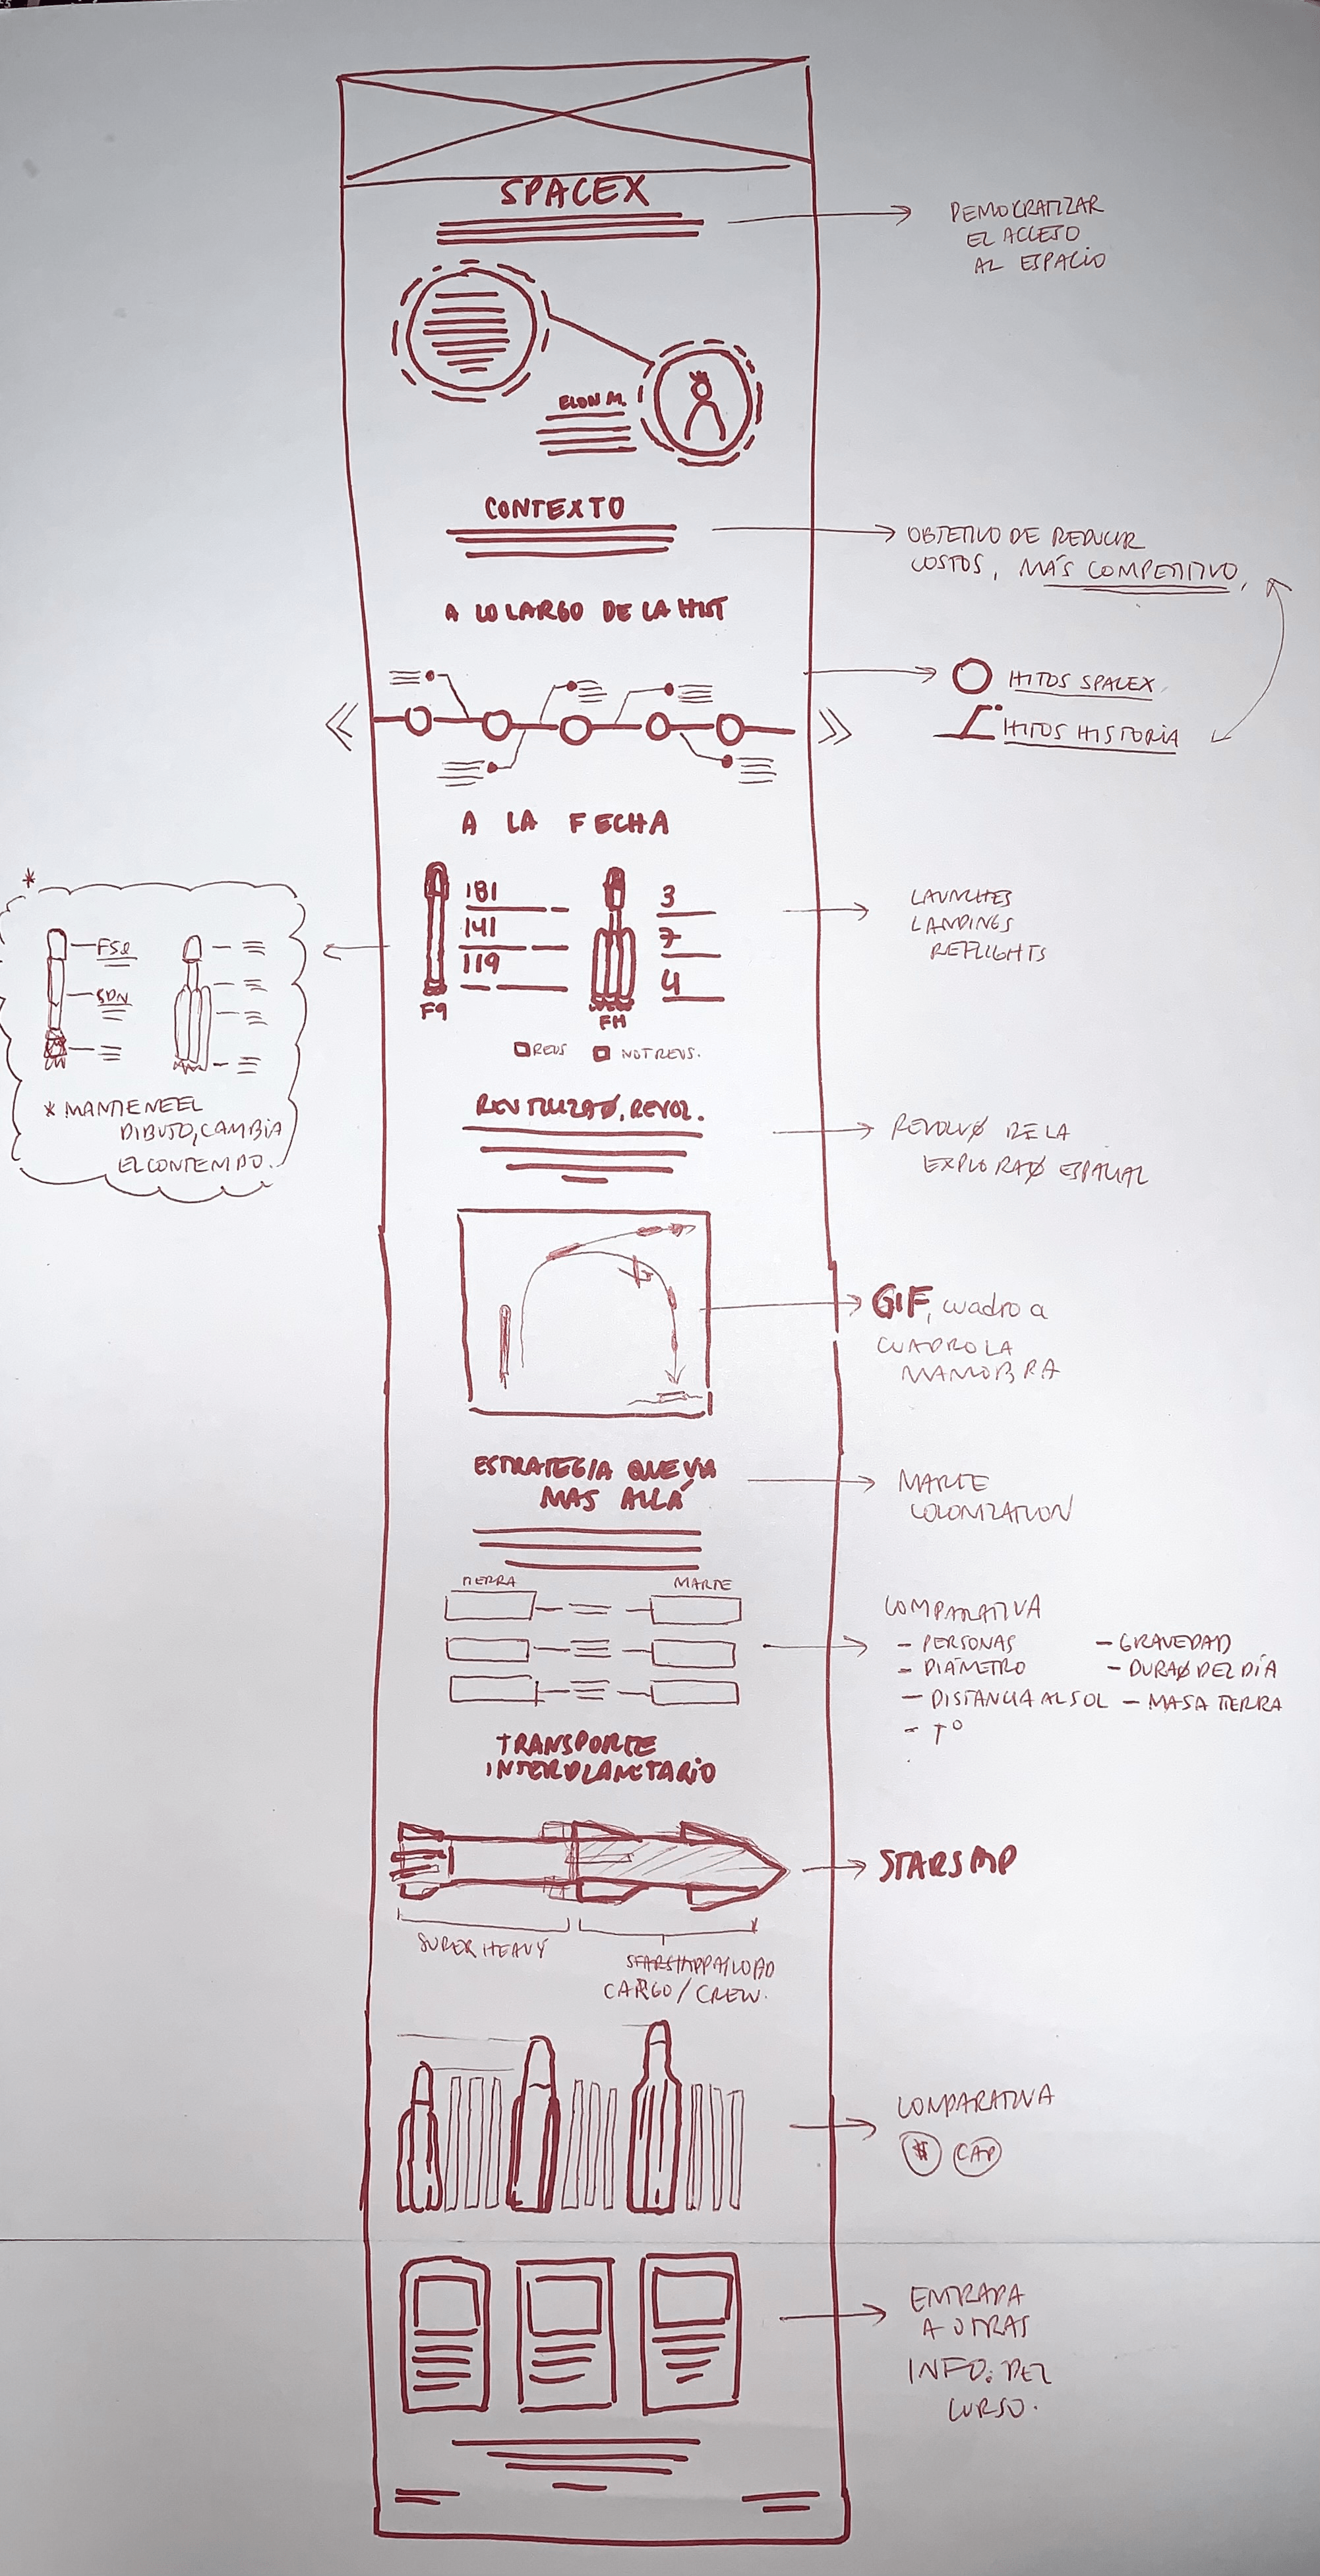 SPACEX
DEMOCRATIZAR
EL ACCESO
AL ESPACIO
ELON M.
CONTEXTO
OBJETIVO DE REDUCIR
COSTOS, MÁS COMPETITIVO,
A LO LARGO DE LA HIST
HITOS SPACEX
HITOS HISTORIA
A LA FECHA
181
141
119
F9
3
7
4
FH
REUS
NOT REUS.
LAUNCHES
LANDINGS
REFLIGHTS
*
* MANTIENE EL
DIBUJO, CAMBIA
EL CONTENIDO.
REUTILIZAØ, REVOL.
REVOLUØ DE LA
EXPLORAØ ESPACIAL
GIF, cuadro a
CUADRO LA
MANIOBRA
ESTRATEGIA QUE VA
MAS ALLÁ
MARTE
COLONIZATION
TIERRA
MARTE
COMPARATIVA
- PERSONAS
- GRAVEDAD
- DIÁMETRO
- DURAØ DEL DÍA
- DISTANCIA AL SOL
- MASA TIERRA
- Tº
TRANSPORTE
INTERPLANETARIO
STARSHIP
SUPER HEAVY
STARSHIP PAYLOAD
CARGO / CREW.
COMPARATIVA
$
CAP
ENTRADA
A OTRAS
INFO. DEL
CURSO.